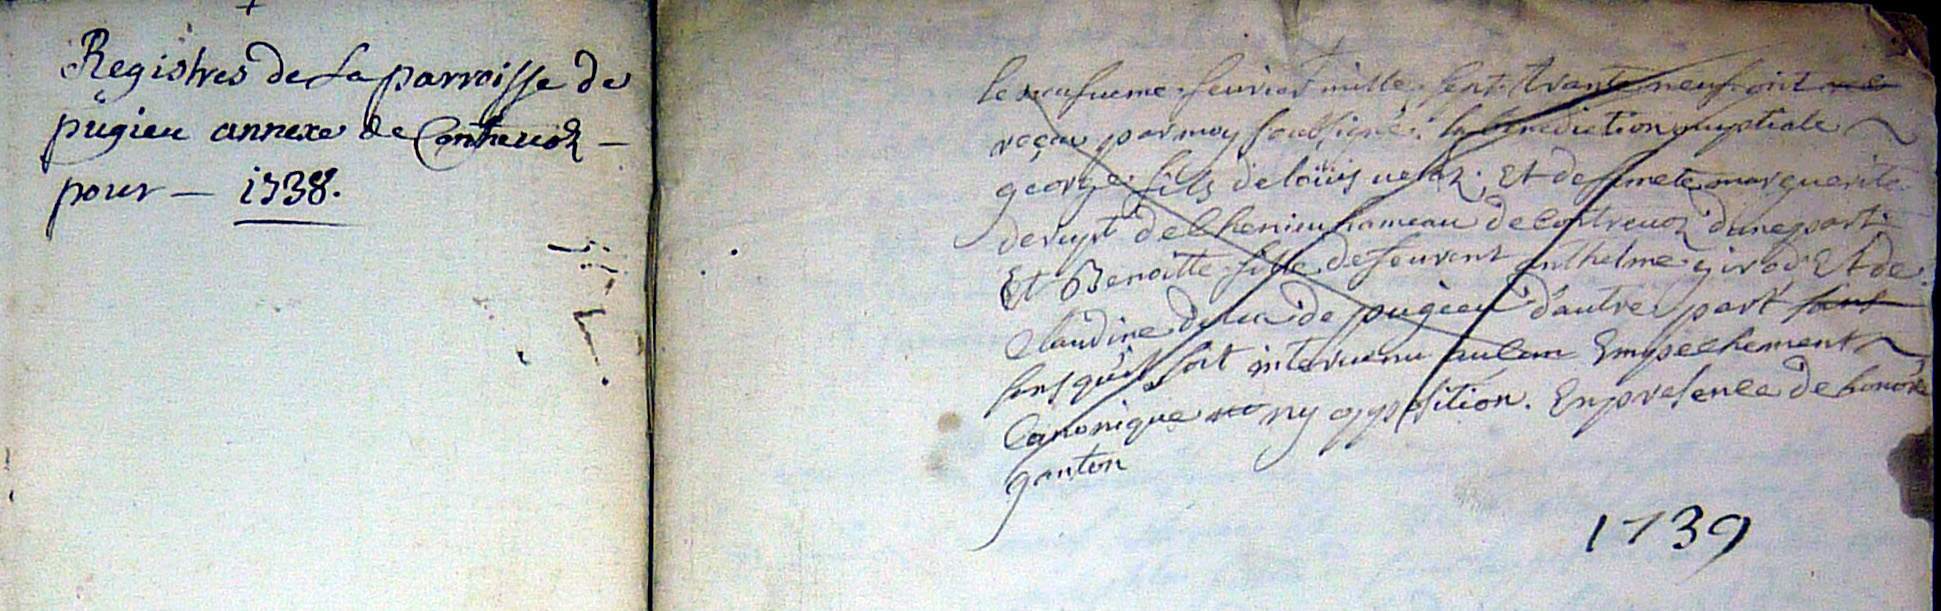 Registres de La parroisse de
pugieu annexe de Contrevoz –
pour – 1738.
le neufuieme feurier mille sept trante neuf ont
reçeu par moy soussigné la bénédiction nuptiale
george fils de loüis &  de marguerite
de chenieu hameau de Contrevoz d'une part
Et Benoitte fille de anthelme girod Et de
Claudine de pugieu d'autre part sans
sans qu'il soit intervenu aucun Empechement
Canonique ny opposition. En presence de honoré
ganton
1739